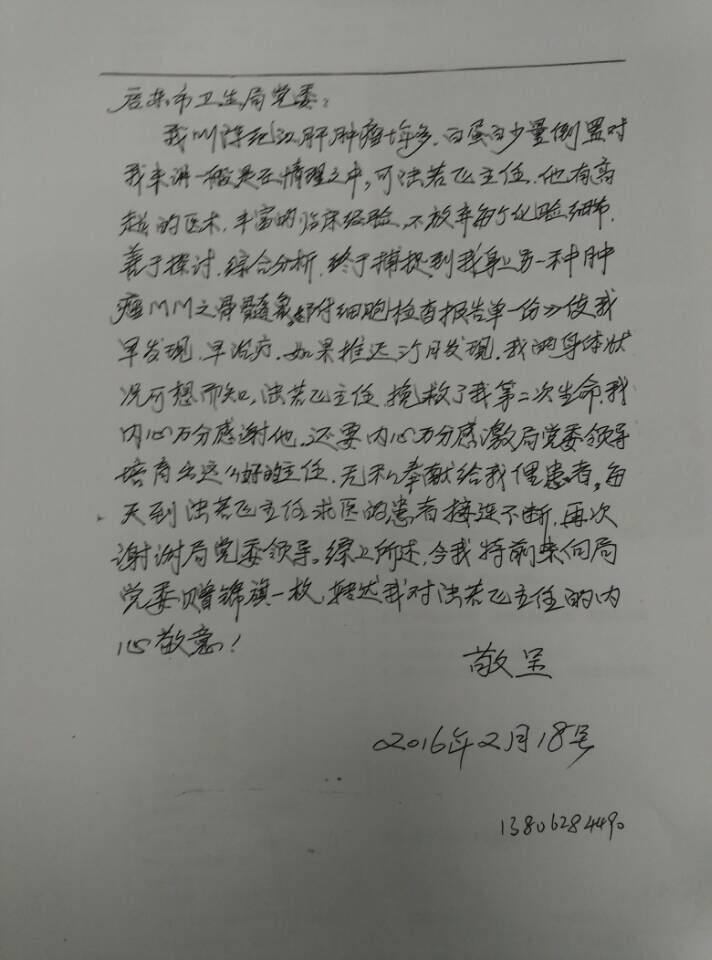 启东市卫生局党委：
我叫陈 汉肝肿瘤十年多，白蛋白少量倒置对
我来讲一般是在情理之中，可法若飞主任，他有高
超的医术，丰富的临床经验，不放弃每个化验细节，
善于探讨，综合分析，终于捕捉到我身上另一种肿
瘤MM之骨髓 附细胞检查报告单一份》使我
早发现，早治疗，如果推迟 月发现，我的身体状
况可想而知，法若飞主任，挽救了我第二次生命，我
内心万分感谢他，还要内心万分感激局党委领导
培育出这么好的主任，无私奉献给我们患者，每
天到法若飞主任求医的患者接连不断，再次
谢谢局党委领导。综上所述，今我特前来向局
党委赠锦旗一枚，转达我对法若飞主任的内
心敬意！
敬呈
2016年2月18号
13806284490